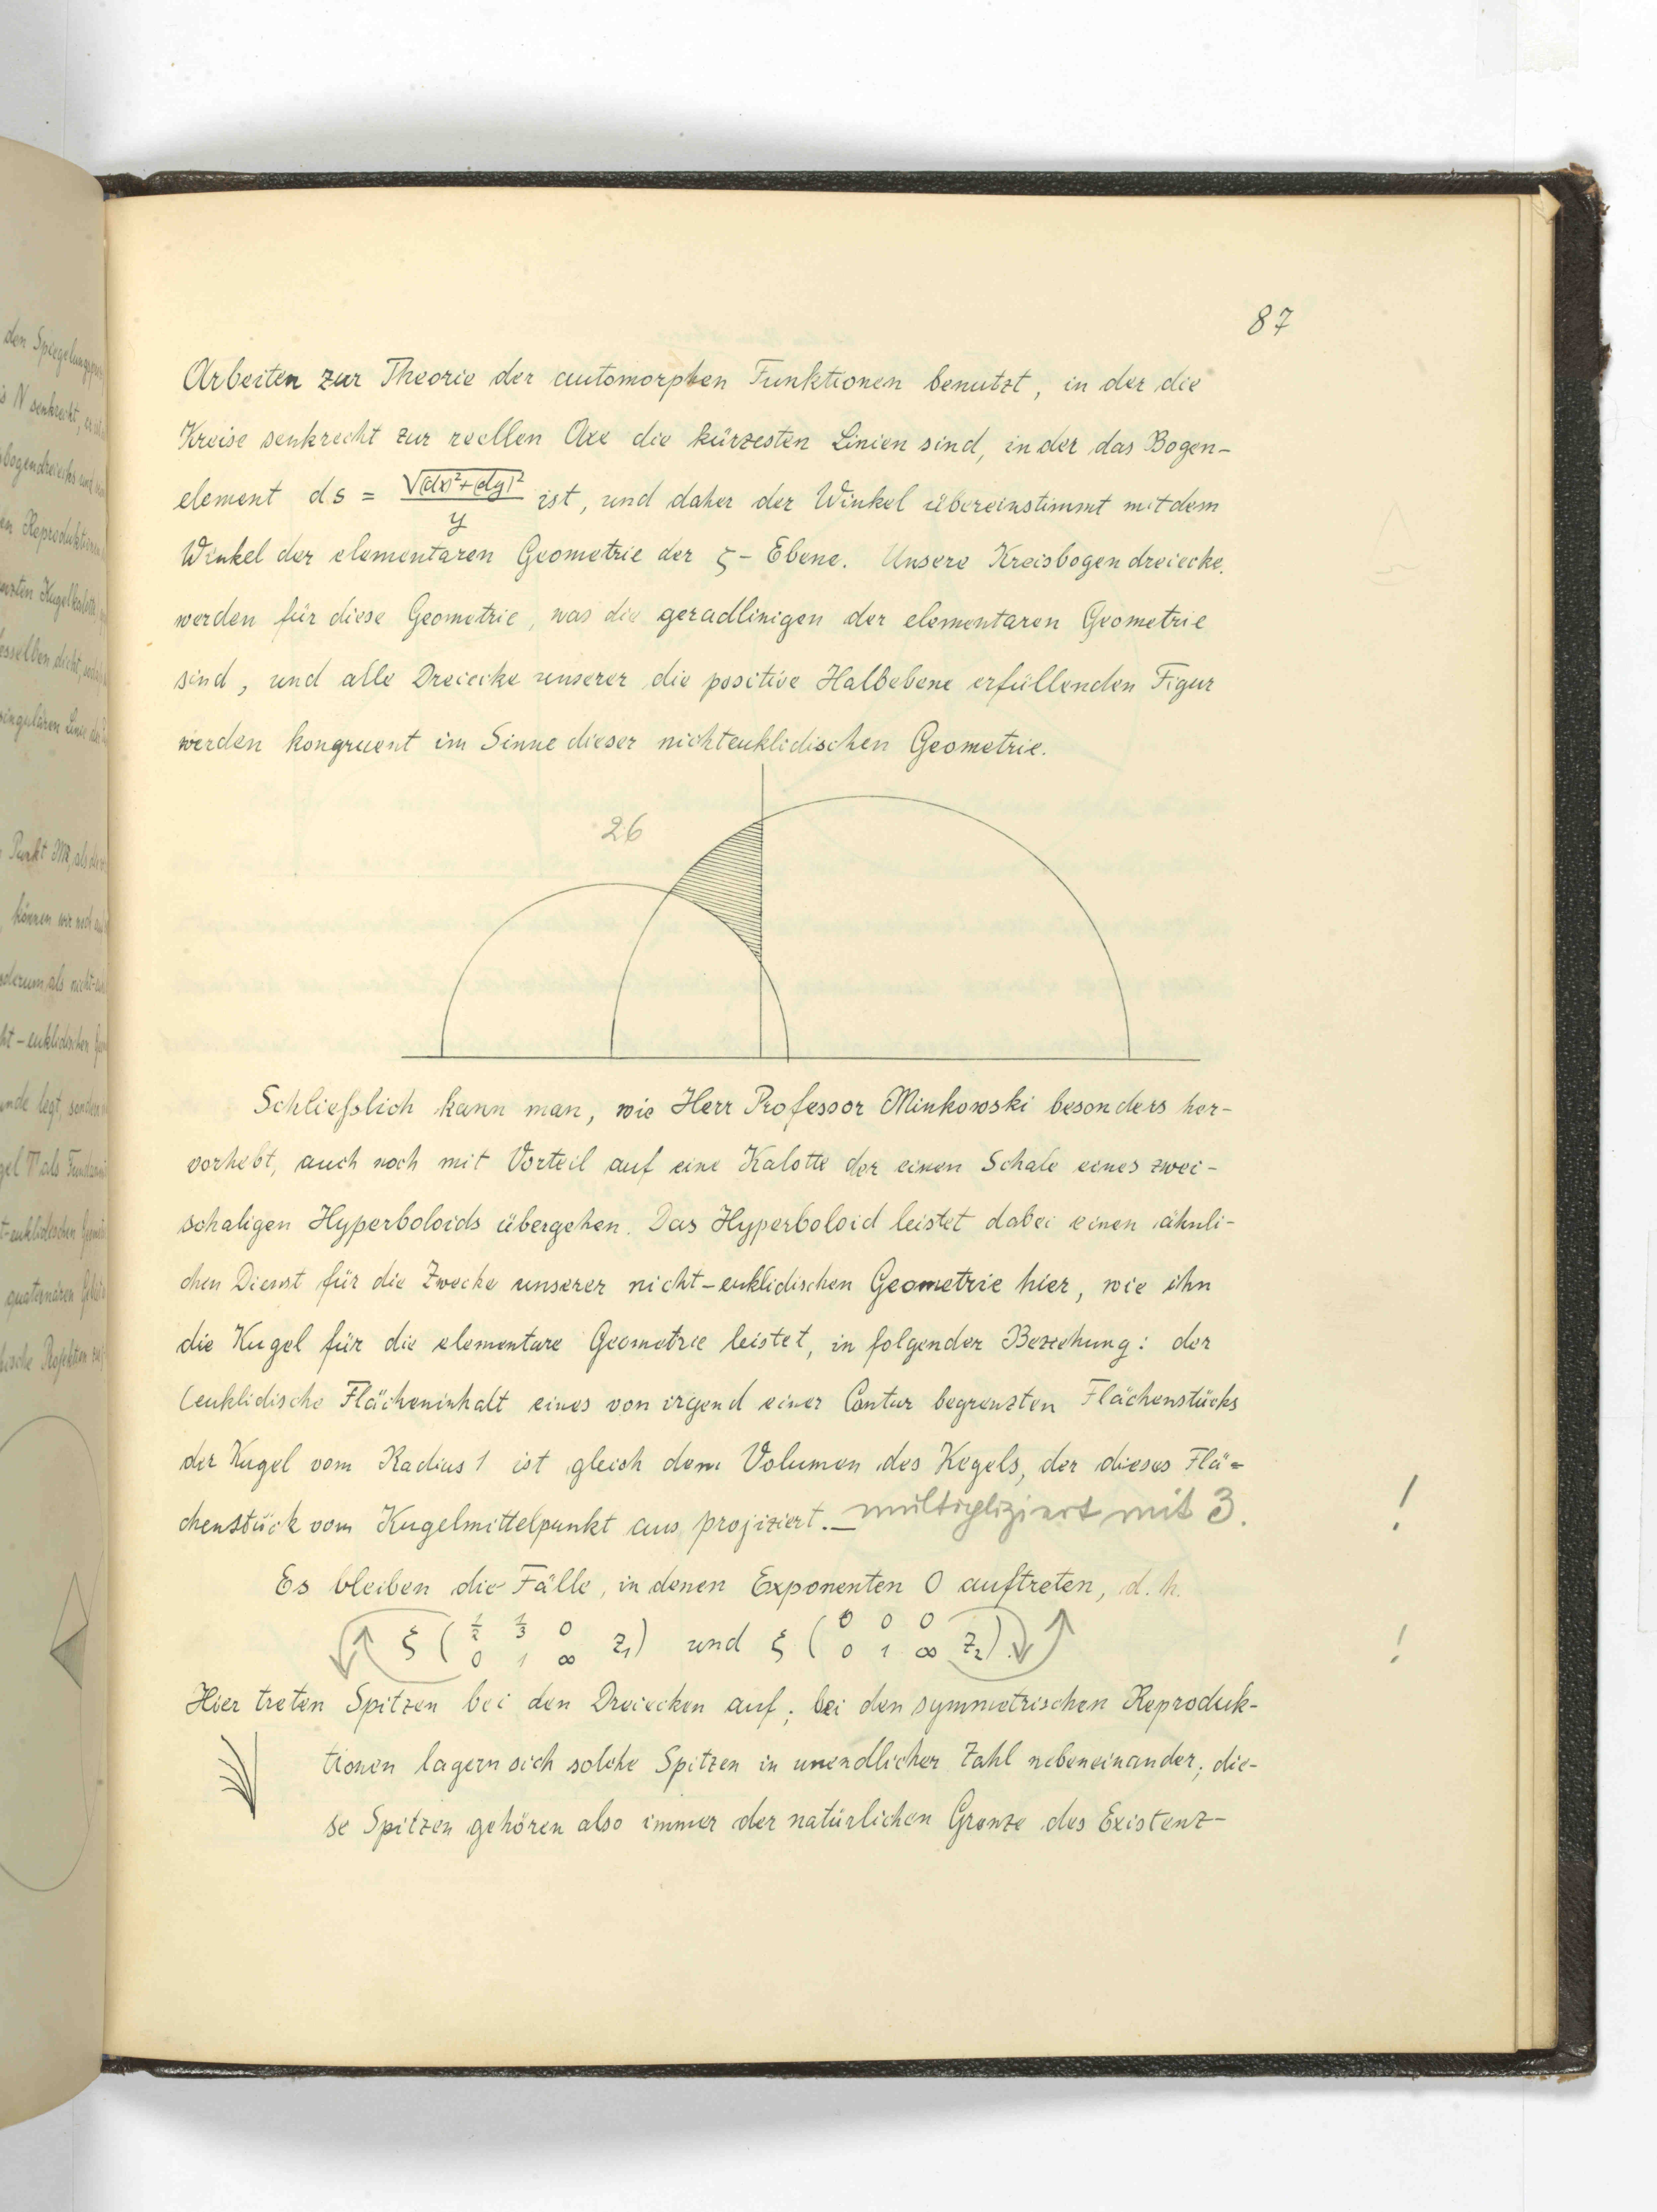 87
Arbeiten zur Theorie der automorphen Funktionen benutzt, in der die
Kreise senkrecht zur reellen Axe die kürzesten Linien sind, in der das Bogen-
element ds = √(dx)²+(dy)² / y ist, und daher der Winkel übereinstimmt mit dem
Winkel der elementaren Geometrie der ζ-Ebene. Unsere Kreisbogendreiecke
werden für diese Geometrie, was die geradlinigen der elementaren Geometrie
sind, und alle Dreiecke unserer die positive Halbebene erfüllenden Figur
werden kongruent im Sinne dieser nichteuklidischen Geometrie.
26
Schließlich kann man, wie Herr Professor Minkowski besonders her-
vorhebt, auch noch mit Vorteil auf eine Kalotte der einen Schale eines zwei-
schaligen Hyperboloids übergehen. Das Hyperboloid leistet dabei einen ähnli-
chen Dienst für die Zwecke unserer nicht-euklidischen Geometrie hier, wie ihn
die Kugel für die elementare Geometrie leistet, in folgender Beziehung: der
(euklidische Flächeninhalt eines von irgend einer Contur begrenzten Flächenstücks
der Kugel vom Radius 1 ist gleich dem Volumen des Kegels, der dieses Flä-
chenstück vom Kugelmittelpunkt aus projiziert. — multipliziert mit 3. !
Es bleiben die Fälle, in denen Exponenten 0 auftreten, d. h.
ξ ( 1/2 1/3 0 / 0 1 ∞ z₁) und ξ ( 0 0 0 / 0 1 ∞ z₂). !
Hier treten Spitzen bei den Dreiecken auf; bei den symmetrischen Reproduk-
tionen lagern sich solche Spitzen in unendlicher Zahl nebeneinander; die-
se Spitzen gehören also immer der natürlichen Grenze des Existenz-